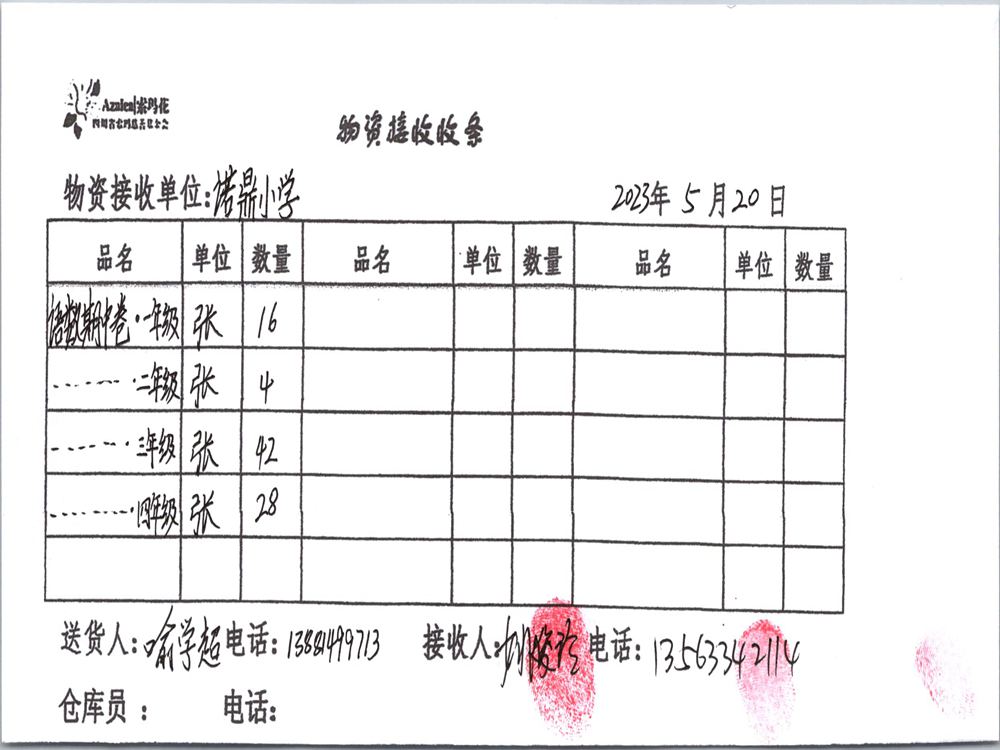 Azalea|索玛花
四川省索玛慈善基金会
物资接收收条
物资接收单位:诺鼎小学 2023年 5月20日
品名 单位 数量 品名 单位 数量 品名 单位 数量
语数期中卷·一年级 张 16
-------·二年级 张 4
------·三年级 张 42
--------·四年级 张 28
送货人:喻学超 电话:13881499713 接收人: 电话:13563342114
仓库员： 电话: